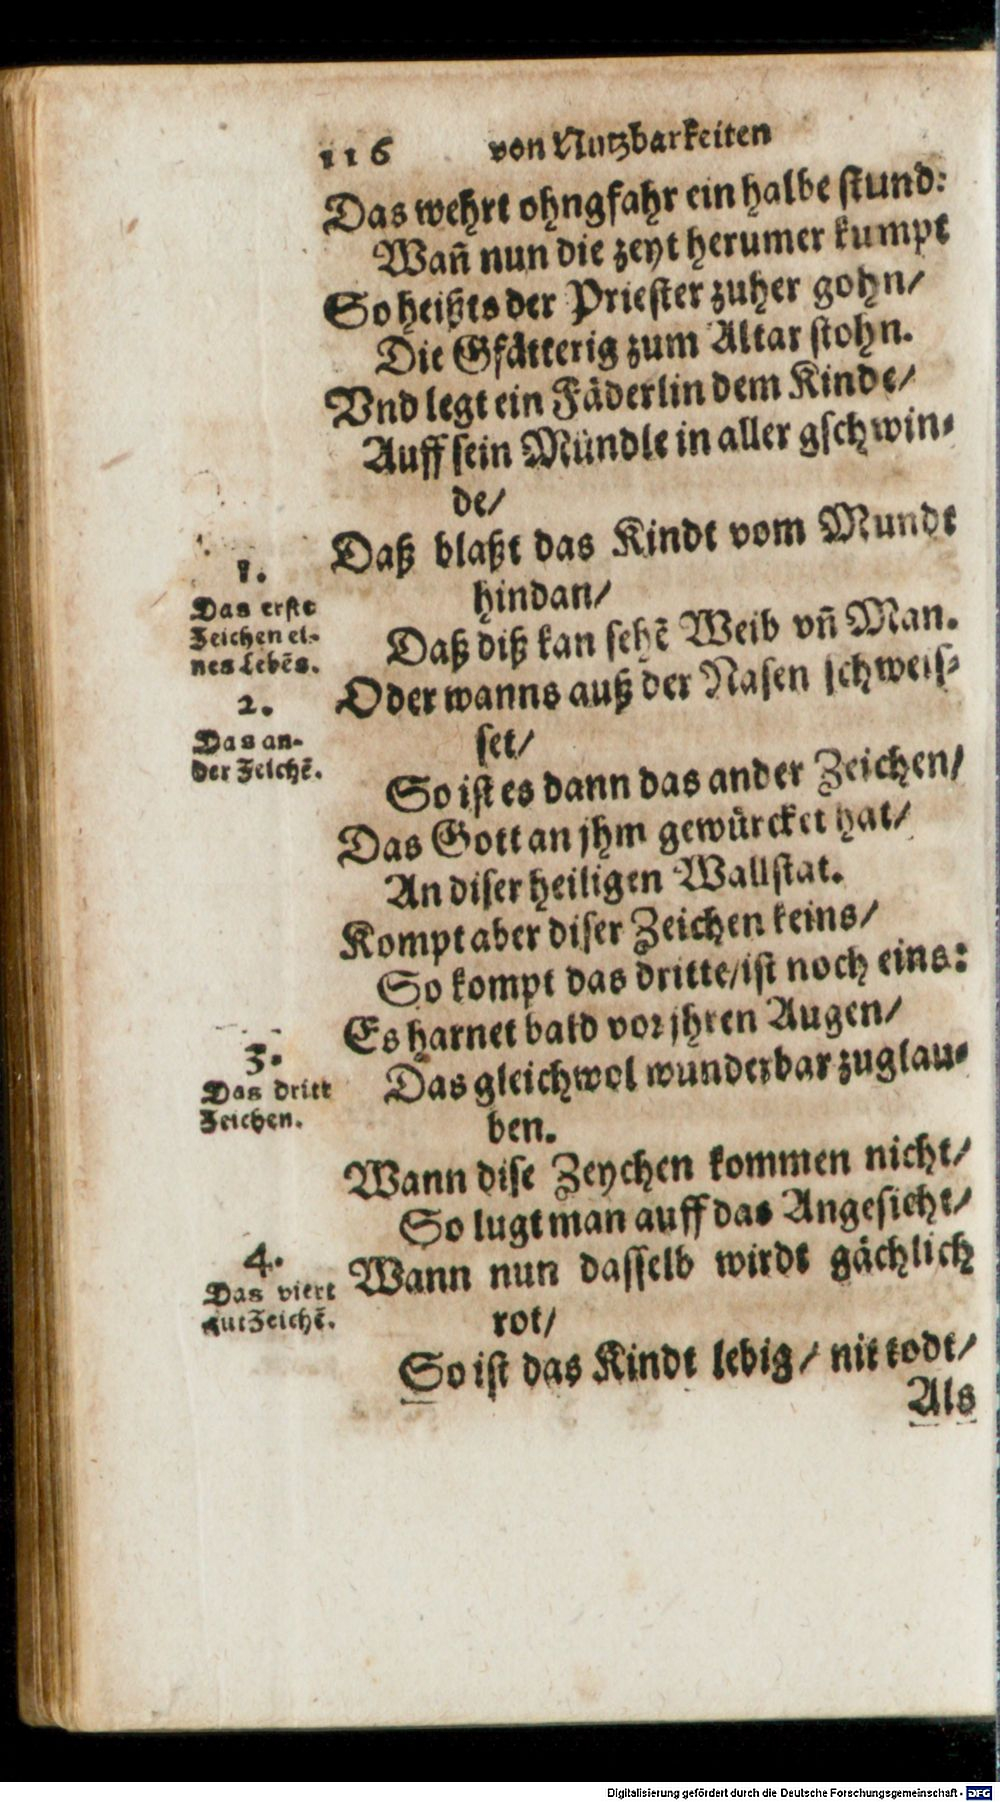 116 von Nutzbarkeiten
Das wehrt ohngfahr ein halbe stund:
Wañ nun die zeyt herumer kumpt
So heißts der Priester zuher gohn/
Die Gfätterig zum Altar stohn.
Vnd legt ein Fäderlin dem Kinde/
Auff sein Mündle in aller gschwin-
de/
Daß blaßt das Kindt vom Mundt
hindan/
Daß diß kan sehẽ Weib vñ Man.
Oder wanns auß der Nasen schweis-
set/
So ist es dann das ander Zeichen/
Das Gott an jhm gewürcket hat/
An diser heiligen Wallstat.
Kompt aber diser Zeichen keins/
So kompt das dritte/ist noch eins:
Es harnet bald vor jhren Augen/
Das gleichwol wunderbar zuglau-
ben.
Wann dise Zeychen kommen nicht/
So lugt man auff das Angesicht/
Wann nun dasselb wirdt gächlich
rot/
So ist das Kindt lebig/ nit todt/
Als
1.
Das erste
Zeichen ei-
nes Lebẽs.
2.
Das an-
der Zeichẽ.
3.
Das dritt
Zeichen.
4.
Das viert
gut Zeichẽ.
Digitalisierung gefördert durch die Deutsche Forschungsgemeinschaft - DFG